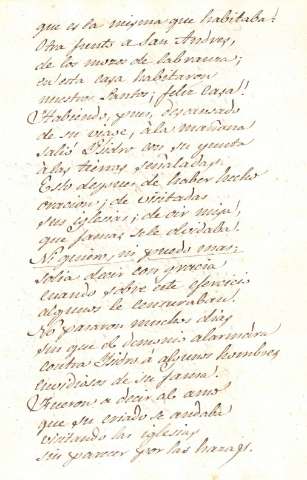 que es la misma que habitaba!
Otra frente a San Andres,
de los mozos de labranza;
en esta casa habitaron
nuestros Santos; feliz casa!
Habiendo, pues, descansado
de su viage, á la mañana
salió Isidro con su yunta
á las tierras señaladas.
Esto despues de haber hecho
oracion; de visitadas
sus iglesias; de oir misa,
que jamas se le olvidaba.
Ni quiero, ni puedo mas
solia decir con gracia
cuando sobre este ejercicio
algunos le censuraban.
No pasaron muchos dias
sin que el demonio alarmára
contra Isidro á algunos hombres
envidiosos de su fama.
Fueron a decir al amo
que su criado se andaba
visitando las iglesias
sin parecer por las hazas.